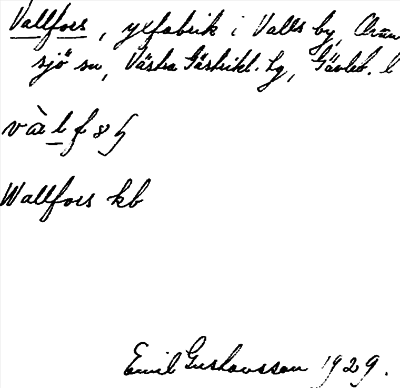 Vallfors, yxfabrik i Valls by, Åm
sjö sn, Västra Gästrikl. tg, Gävleb. l
Wallfors kb
Emil Gustavsson 1929.